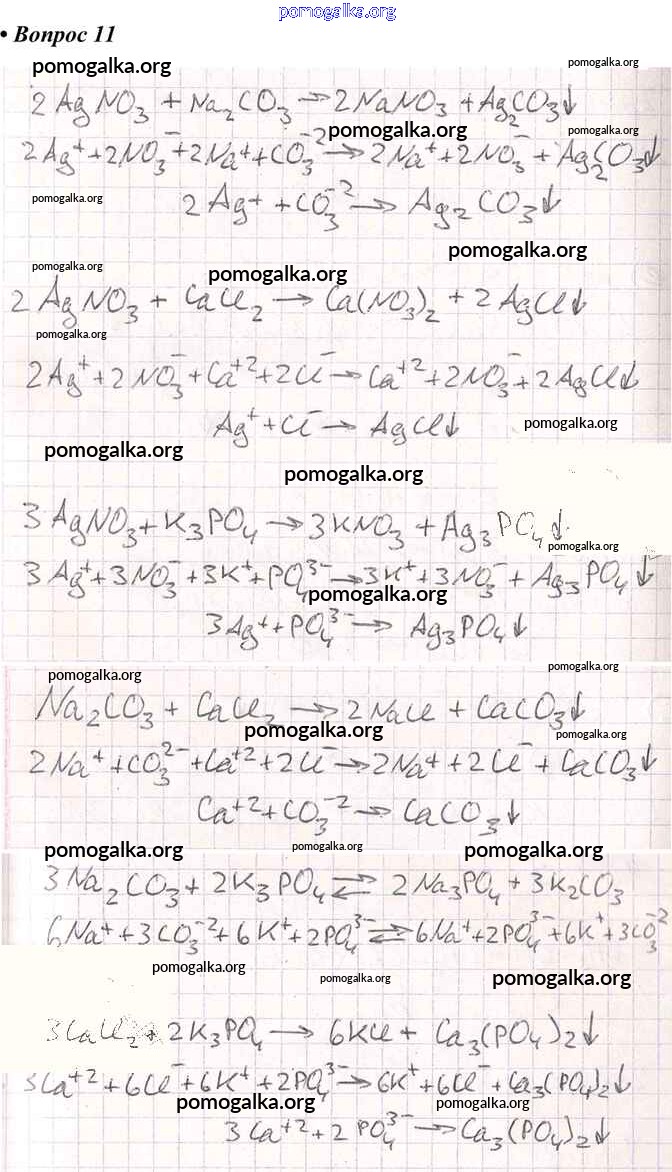 pomogalka.org
• Вопрос 11
pomogalka.org pomogalka.org
2AgNO₃ + Na₂CO₃ → 2NaNO₃ + Ag₂CO₃↓
pomogalka.org pomogalka.org
2Ag⁺ + 2NO₃⁻ + 2Na⁺ + CO₃⁻² → 2Na⁺ + 2NO₃⁻ + Ag₂CO₃↓
pomogalka.org
2Ag⁺ + CO₃⁻² → Ag₂CO₃↓
pomogalka.org
pomogalka.org pomogalka.org
2AgNO₃ + CaCl₂ → Ca(NO₃)₂ + 2AgCl↓
pomogalka.org
2Ag⁺ + 2NO₃⁻ + Ca⁺² + 2Cl⁻ → Ca⁺² + 2NO₃⁻ + 2AgCl↓
Ag⁺ + Cl⁻ → AgCl↓
pomogalka.org
pomogalka.org
pomogalka.org
3AgNO₃ + K₃PO₄ → 3KNO₃ + Ag₃PO₄↓
pomogalka.org
3Ag⁺ + 3NO₃⁻ + 3K⁺ + PO₄³⁻ → 3K⁺ + 3NO₃⁻ + Ag₃PO₄↓
pomogalka.org
3Ag⁺ + PO₄³⁻ → Ag₃PO₄↓
pomogalka.org pomogalka.org
Na₂CO₃ + CaCl₂ → 2NaCl + CaCO₃↓
pomogalka.org pomogalka.org
2Na⁺ + CO₃²⁻ + Ca⁺² + 2Cl⁻ → 2Na⁺ + 2Cl⁻ + CaCO₃↓
Ca⁺² + CO₃⁻² → CaCO₃↓
pomogalka.org pomogalka.org pomogalka.org
3Na₂CO₃ + 2K₃PO₄ ⇄ 2Na₃PO₄ + 3K₂CO₃
6Na⁺ + 3CO₃⁻² + 6K⁺ + 2PO₄³⁻ ⇄ 6Na⁺ + 2PO₄³⁻ + 6K⁺ + 3CO₃⁻²
pomogalka.org pomogalka.org pomogalka.org
3CaCl₂ + 2K₃PO₄ → 6KCl + Ca₃(PO₄)₂↓
3Ca⁺² + 6Cl⁻ + 6K⁺ + 2PO₄³⁻ → 6K⁺ + 6Cl⁻ + Ca₃(PO₄)₂↓
pomogalka.org pomogalka.org
3Ca⁺² + 2PO₄³⁻ → Ca₃(PO₄)₂↓